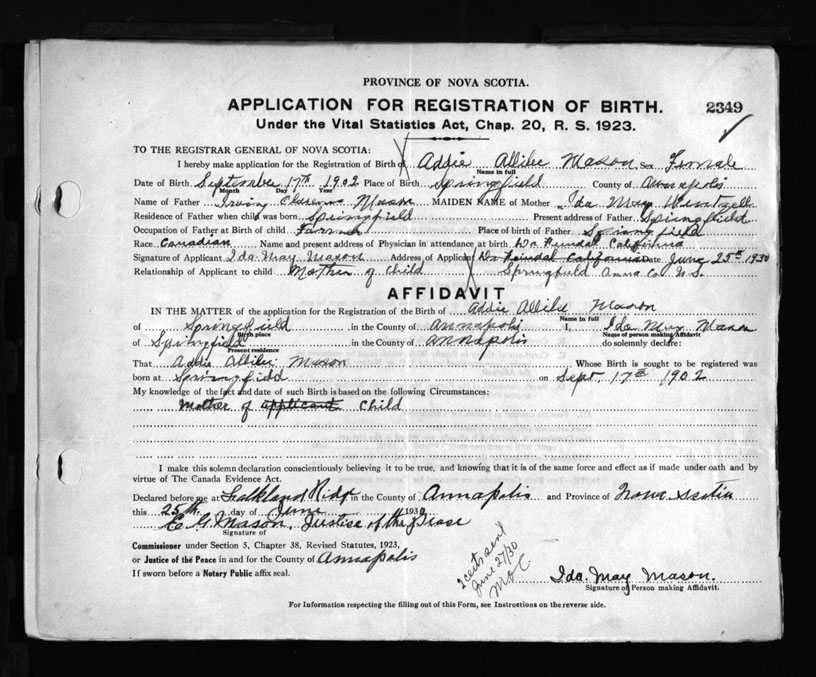 PROVINCE OF NOVA SCOTIA.
APPLICATION FOR REGISTRATION OF BIRTH. 2349
Under the Vital Statistics Act, Chap. 20, R. S. 1923.
TO THE REGISTRAR GENERAL OF NOVA SCOTIA:
I hereby make application for the Registration of Birth of Addie Allilee Mason Sex Female
Name in full
Date of Birth September 17th 1902 Place of Birth Springfield County of Annapolis
Month Day Year
Name of Father Irvin Clarence Mason MAIDEN NAME of Mother Ida May
Residence of Father when child was born Springfield Present address of Father Springfield
Occupation of Father at Birth of child Farmer Place of birth of Father Springfield
Race Canadian Name and present address of Physician in attendance at birth Dr. California
Signature of Applicant Ida May Mason Address of Applicant Dr. California Date June 25th 1930
Relationship of Applicant to child Mother of Child Springfield Anna Co N.S.
AFFIDAVIT
IN THE MATTER of the application for the Registration of the Birth of Addie Allilee Mason
Name in full
of Springfield in the County of Annapolis I, Ida May Mason
Birth place Name of person making Affidavit
of Springfield in the County of Annapolis do solemnly declare:
Present residence
That Addie Allilee Mason Whose Birth is sought to be registered was
born at Springfield on Sept. 17th 1902
My knowledge of the fact and date of such Birth is based on the following Circumstances:
Mother of applicant Child
I make this solemn declaration conscientiously believing it to be true, and knowing that it is of the same force and effect as if made under oath and by
virtue of The Canada Evidence Act.
Declared before me at Falkland Ridge in the County of Annapolis and Province of Nova Scotia
this 25th day of June 1930
E G Mason, Justice of the Peace
Signature of
Commissioner under Section 5, Chapter 38, Revised Statutes, 1923,
or Justice of the Peace in and for the County of Annapolis
If sworn before a Notary Public affix seal.
2 certs sent
June 27/30
Ida May Mason.
Signature of Person making Affidavit.
For Information respecting the filling out of this Form, see Instructions on the reverse side.